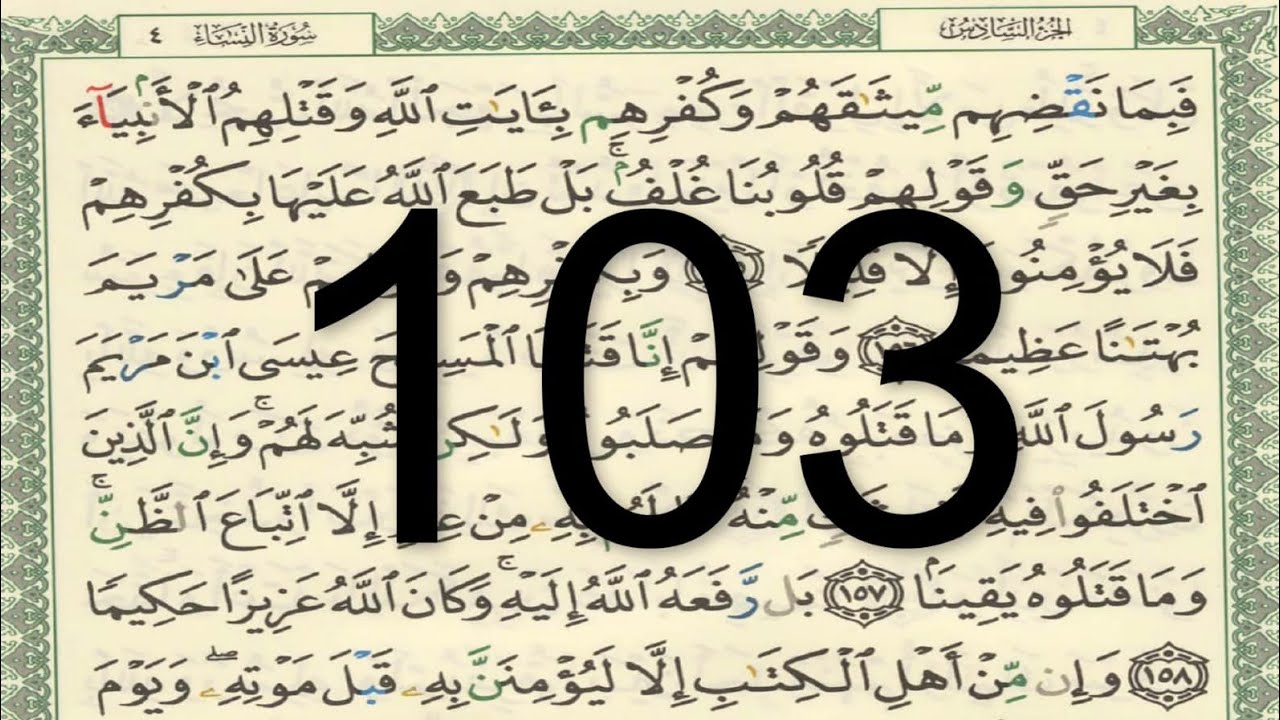 الجُزْءُ السَّادِسُ
سُورَةُ النِّسَاءِ ٤
فَبِمَا نَقْضِهِم مِّيثَٰقَهُمْ وَكُفْرِهِم بِـَٔايَٰتِ ٱللَّهِ وَقَتْلِهِمُ ٱلْأَنۢبِيَآءَ
بِغَيْرِ حَقٍّ وَقَوْلِهِمْ قُلُوبُنَا غُلْفٌۢ ۚ بَلْ طَبَعَ ٱللَّهُ عَلَيْهَا بِكُفْرِهِمْ
فَلَا يُؤْمِنُونَ إِلَّا قَلِيلًا عَلَىٰ مَرْيَمَ
بُهْتَٰنًا عَظِيمًا إِنَّا ٱلْمَسِيحَ عِيسَى ٱبْنَ مَرْيَمَ
رَسُولَ ٱللَّهِ وَمَا قَتَلُوهُ صَلَبُوهُ وَلَٰكِن شُبِّهَ لَهُمْ ۚ وَإِنَّ ٱلَّذِينَ
ٱخْتَلَفُوا۟ فِيهِ مِّنْهُ بِهِۦ مِنْ عِلْمٍ إِلَّا ٱتِّبَاعَ ٱلظَّنِّ ۚ
وَمَا قَتَلُوهُ يَقِينًۢا ١٥٧ بَل رَّفَعَهُ ٱللَّهُ إِلَيْهِ ۚ وَكَانَ ٱللَّهُ عَزِيزًا حَكِيمًا
١٥٨ وَإِن مِّنْ أَهْلِ ٱلْكِتَٰبِ إِلَّا لَيُؤْمِنَنَّ بِهِۦ قَبْلَ مَوْتِهِۦ ۖ وَيَوْمَ
103